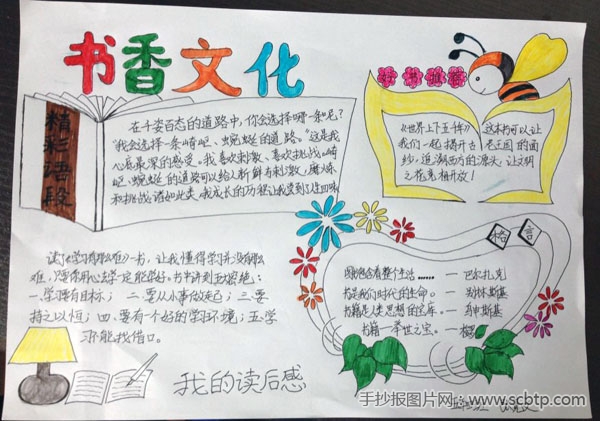 书香文化
好书推荐
精彩语段
在千姿百态的道路中,你会选择哪一条呢?
"我会选择崎岖、蜿蜒的道路。"这是我
心底最深的感受。我喜欢刺激、喜欢挑战。崎
岖、蜿蜒的道路可以给人新鲜、刺激、
和挑战。诸如此类,我成长的历程让我
《世界上下五千年》这本书可以让
我们一起揭开古老王国的面
纱,追溯西方的源头,让文明
之花竞相开放!
格言
——巴尔扎克
书是我们时代的生命。——别林斯基
书籍是人类思想的宝库。——乌申斯基
书籍——举世之宝。——梭罗
读了《学习有那么难么》一书,让我懂得学习并没有那么
难,只要你用心去学一定能学好。书中讲到五秘绝:
一.学习要有目标;二.要从小事做起;三.要
持之以恒;四.要有一个好的学习环境;五.学
习不能找借口。
我的读后感
手抄报图片网:www.scbtp.com